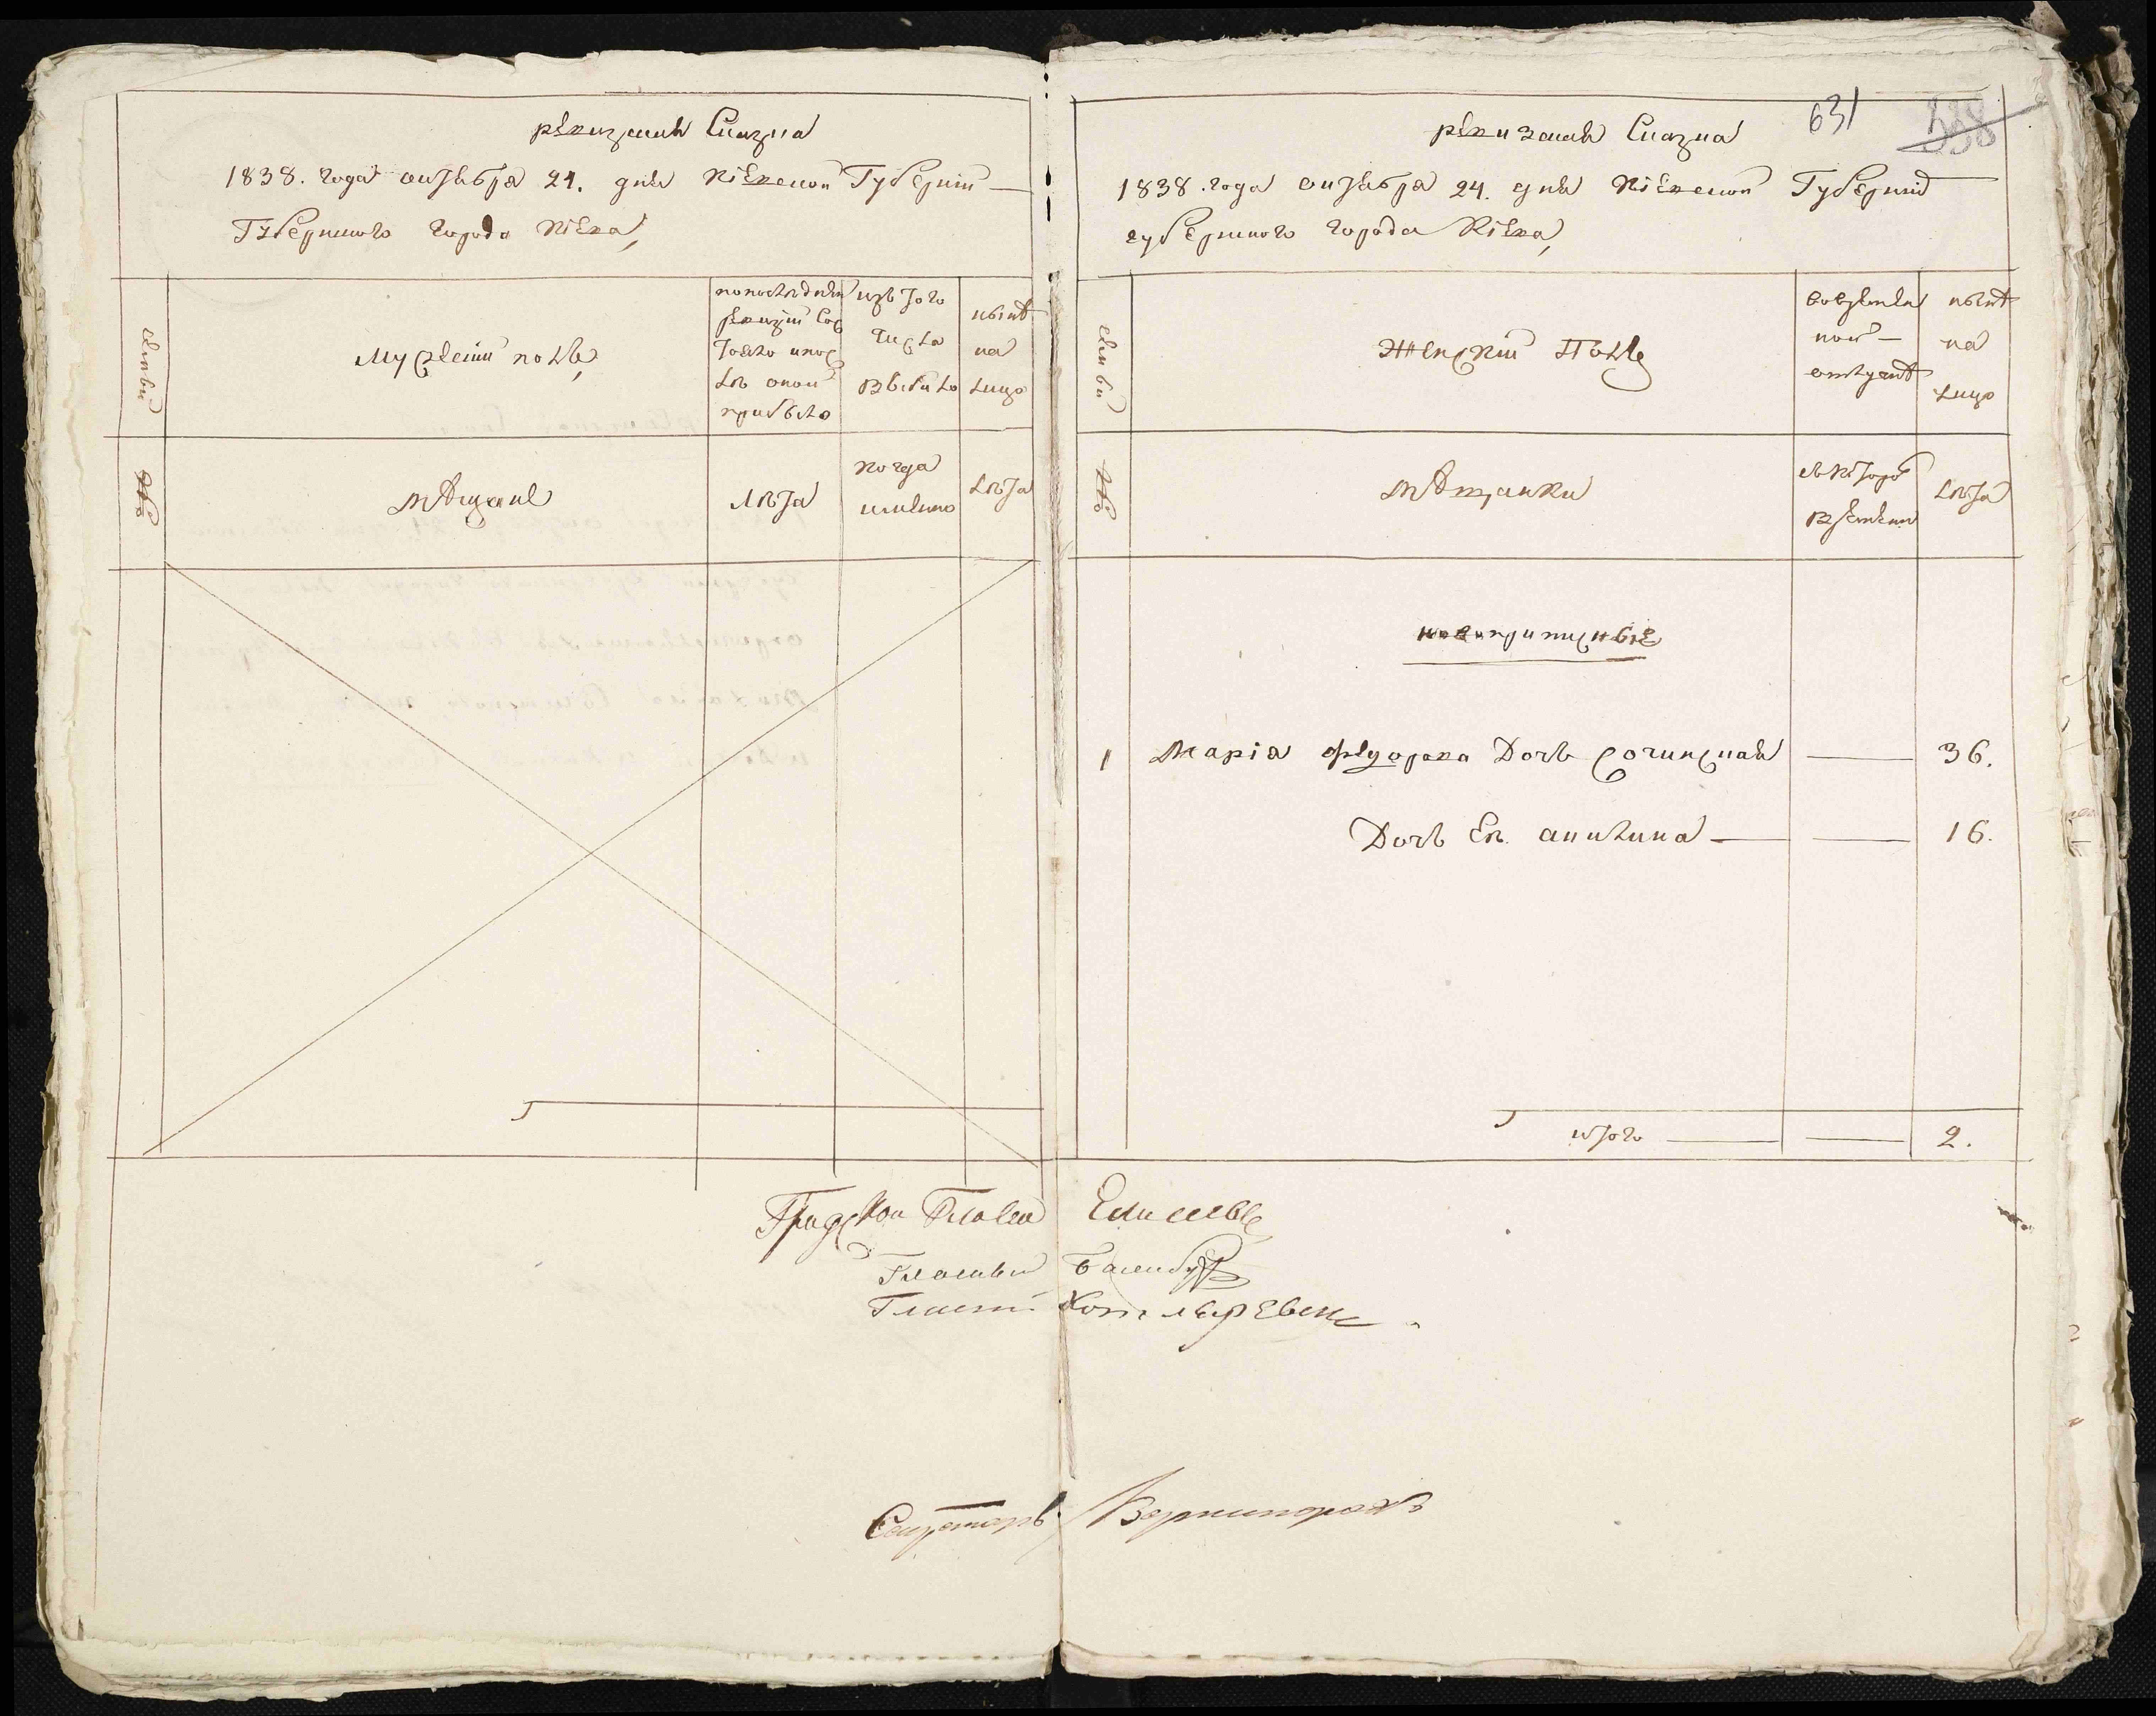 ревизская Сказка
1838. года октября 24. дня Кіевской Губерніи
Губернскаго города Кіева,
семьи
Мужескій полъ,
по последней
ревизіи сос
тояло и пос
лѣ оной
прибыло
изъ того
числа
выбыло
нынѣ
на
лицо
№
мѣщане
лѣта
когда
именно
лѣта
631
338
ревизская Сказка
1838. года октября 24. дня Кіевской Губерніи
губернскаго города Кіева,
семьи
Женскій Полъ
во временной
отлучкѣ
нынѣ
на
лицо
№
мѣщанки
съ котораго
времени
лѣта
новоприписные
1 Марія Федорова Дочь Сочинская 36.
Дочь Ея Акилина 16.
итого 2.
Градской Глава Елисеевъ
Гласный
Гласный
Секретарь